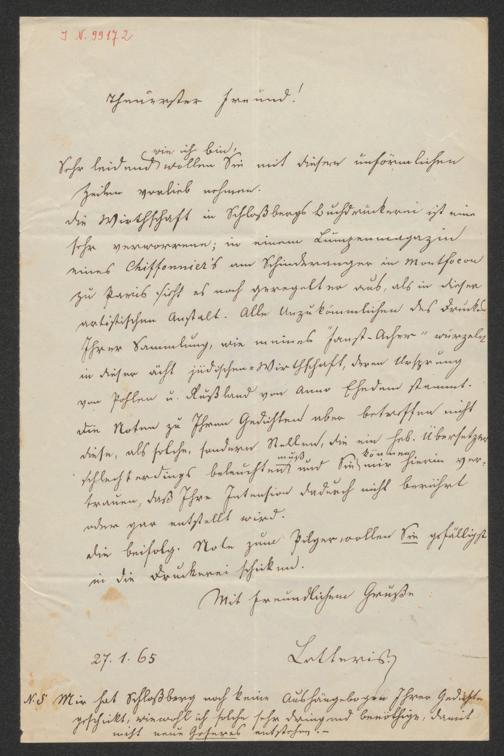 I. N. 99172
Theuerster Freund!
wie ich bin,
Sehr leidend wollen Sie mit diesen unförmlichen
Zeilen vorlieb nehmen.
Die Wirthschaft in Schloßbergs Buchdruckerei ist eine
sehr verworrene; in einem Lumpenmagazin
eines Chiffonnier's am Schinderanger in Montfocon
zu Paris sieht es noch geregelter aus, als in dieser
artistischen Anstalt. Alle Unzukömmlichen des Druckes
Ihrer Sammlung, wie meines "Janst-Acher" wurzeln
in dieser ächt jüdischen Wirthschaft, deren Ursprung
von Pohlen u. Rußland von Anno Ehedem stammt.
Die Noten zu Ihren Gedichten aber betreffen nicht
diese, als solche, sondern Stellen, die ein heb. Übersetzer
muß können
schlechterdings beleuchten und Sie mir hierin ver-
trauen, daß Ihre Intension dadurch nicht berührt
oder gar entstellt wird.
Die beifolg. Note zum Pilger, wollen Sie gefälligst
in die Druckerei schicken.
Mit freundlichem Gruße
27. 1. 65 Letteris
N.S. Mir hat Schloßberg noch keine Aushängebogen Ihrer Gedichte
geschickt, wiewohl ich solche sehr dringend benöthige, damit
nicht neue entstehen. –